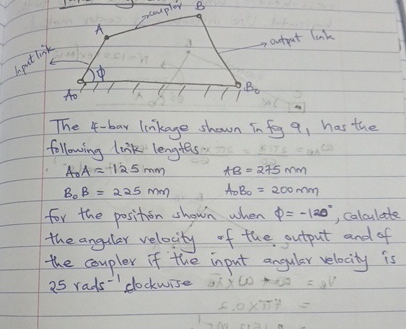 coupler
B
A
output link
Input link
ϕ
A₀
B₀
The 4-bar linkage shown in fig 9, has the
following link lengths:
A₀A = 125 mm AB = 275 mm
B₀B = 225 mm A₀B₀ = 200 mm
For the position shown when ϕ = -120°, calculate
the angular velocity of the output and of
the coupler if the input angular velocity is
25 rads⁻¹ clockwise